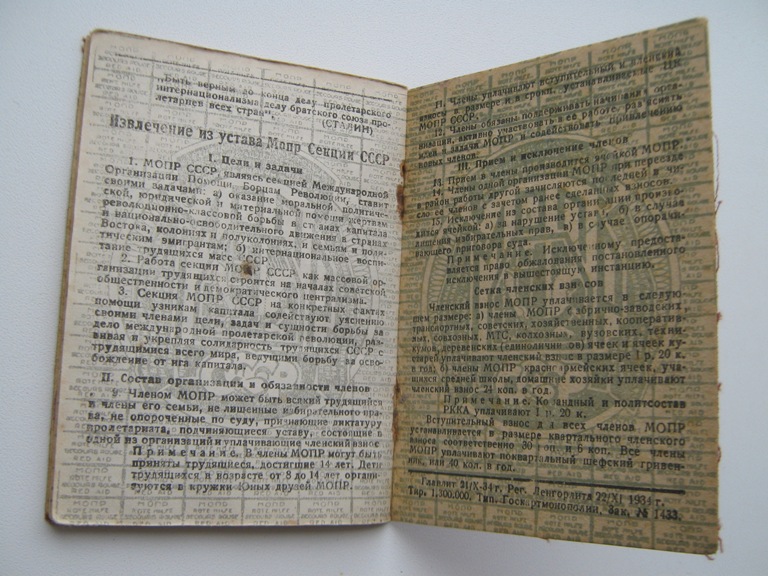 „Быть верным до конца делу пролетарского
интернационализма делу братского союза про-
летариев всех стран“.
(СТАЛИН)
Извлечение из устава Мопр Секции СССР
I. Цели и задачи
1. МОПР СССР, являясь секцией Международной
Организации Помощи Борцам Революции, ставит
своими задачами: а) оказание моральной, политиче-
ской, юридической и материальной помощи жертвам
революционно-массовой борьбы в странах капитала
и национально-освободительного движения в странах
Востока, колониях и полуколониях, и семьям и поли-
тическим эмигрантам; б) интернациональное воспи-
тание трудящихся масс СССР.
2. Работа секции МОПР СССР как массовой ор-
ганизации трудящихся строится на началах советской
общественности и демократического централизма.
3. Секция МОПР СССР на конкретных фактах
помощи узникам капитала содействуют уяснению
своими членами цели, задач и сущности борьбы за
дело международной пролетарской революции, раз-
вивая и укрепляя солидарность трудящихся СССР с
трудящимися всего мира, ведущими борьбу за осво-
бождение от ига капитала.
II. Состав организации и обязанности членов
9. Членом МОПР может быть всякий трудящийся
и члены его семьи, не лишенные избирательного пра-
ва, не опороченные по суду, признающие диктатуру
пролетариата, подчиняющиеся уставу, состоящие в
одной из организаций и уплачивающие членский взнос
Примечание. В члены МОПР могут быть
приняты трудящиеся, достигшие 14 лет. Дети
трудящихся в возрасте от 8 до 14 лет органи-
зуются в кружки Юных друзей МОПР.
11. Члены уплачивают вступительный и членские
взносы в размере и в сроки, устанавливаемые ЦК
МОПР СССР.
12. Члены обязаны поддерживать начинания орга-
низации, активно участвовать в ее работе, разъяснять
идеи и задачи МОПР и содействовать привлечению
новых членов.
III. Прием и исключение членов
13. Прием в члены производится ячейкой МОПР.
14. Члены одной организации МОПР при переезде
в район работы другой зачисляются последней в чи-
сло ее членов с зачетом ранее сделанных взносов.
15. Исключение из состава организации произво-
дится ячейкой: а) за нарушение устава, б) в случае
лишения избирательных прав, в) в случае опорачи-
вающего приговора суда.
Примечание. Исключенному предоста-
вляется право обжалования постановленного
исключения в вышестоящую инстанцию.
Сетка членских взносов
Членский взнос МОПР уплачивается в следую-
щем размере: а) члены МОПР фабрично-заводских,
транспортных, советских, хозяйственных, кооператив-
ных, совхозных, МТС, колхозных, вузовских, техни-
кумов, деревенских (единоличников) ячеек и ячеек ку-
старей уплачивают членский взнос в размере 1 р. 20 к.
в год; б) члены МОПР красноармейских ячеек, уча-
щиеся средней школы, домашние хозяйки уплачивают
членский взнос 24 коп. в год.
Примечание. Командный и политсостав
РККА уплачивают 1 р. 20 к.
Вступительный взнос для всех членов МОПР
устанавливается в размере квартального членского
взноса соответственно 30 коп. и 6 коп. Все члены
МОПР уплачивают поквартальный шефский гривен-
ник, или 40 коп. в год.
Главлит 31/X-34 г. Рег. Ленгорлита 22/XI 1934 г.
Тир. 1,300.000. Тип. Госкартмонополии, Зак. № 1433.